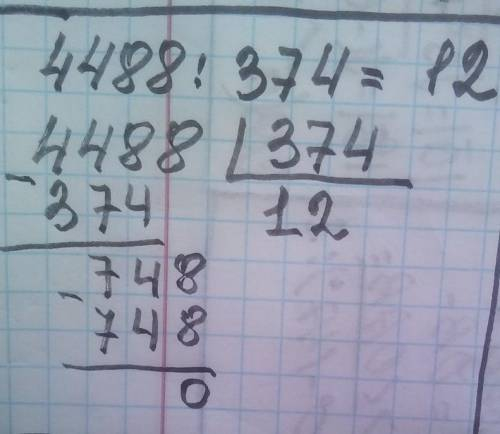 4488: 374 = 12
4488 | 374
- 374 12
- 748
748
0